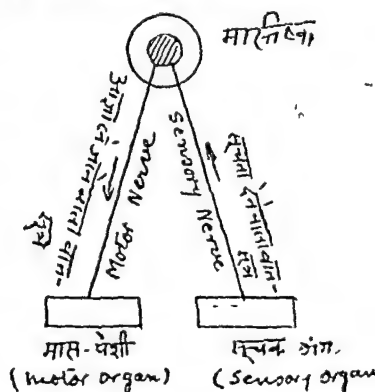 मास्तिष्क
आज्ञा ले जाने वाला वात-
सूत्र
Motor Nerve
Sensory Nerve
सूचना देने वाला वात-
सूत्र
मांस-पेशी
(motor organ)
सूचक अंग.
(Sensory organ)